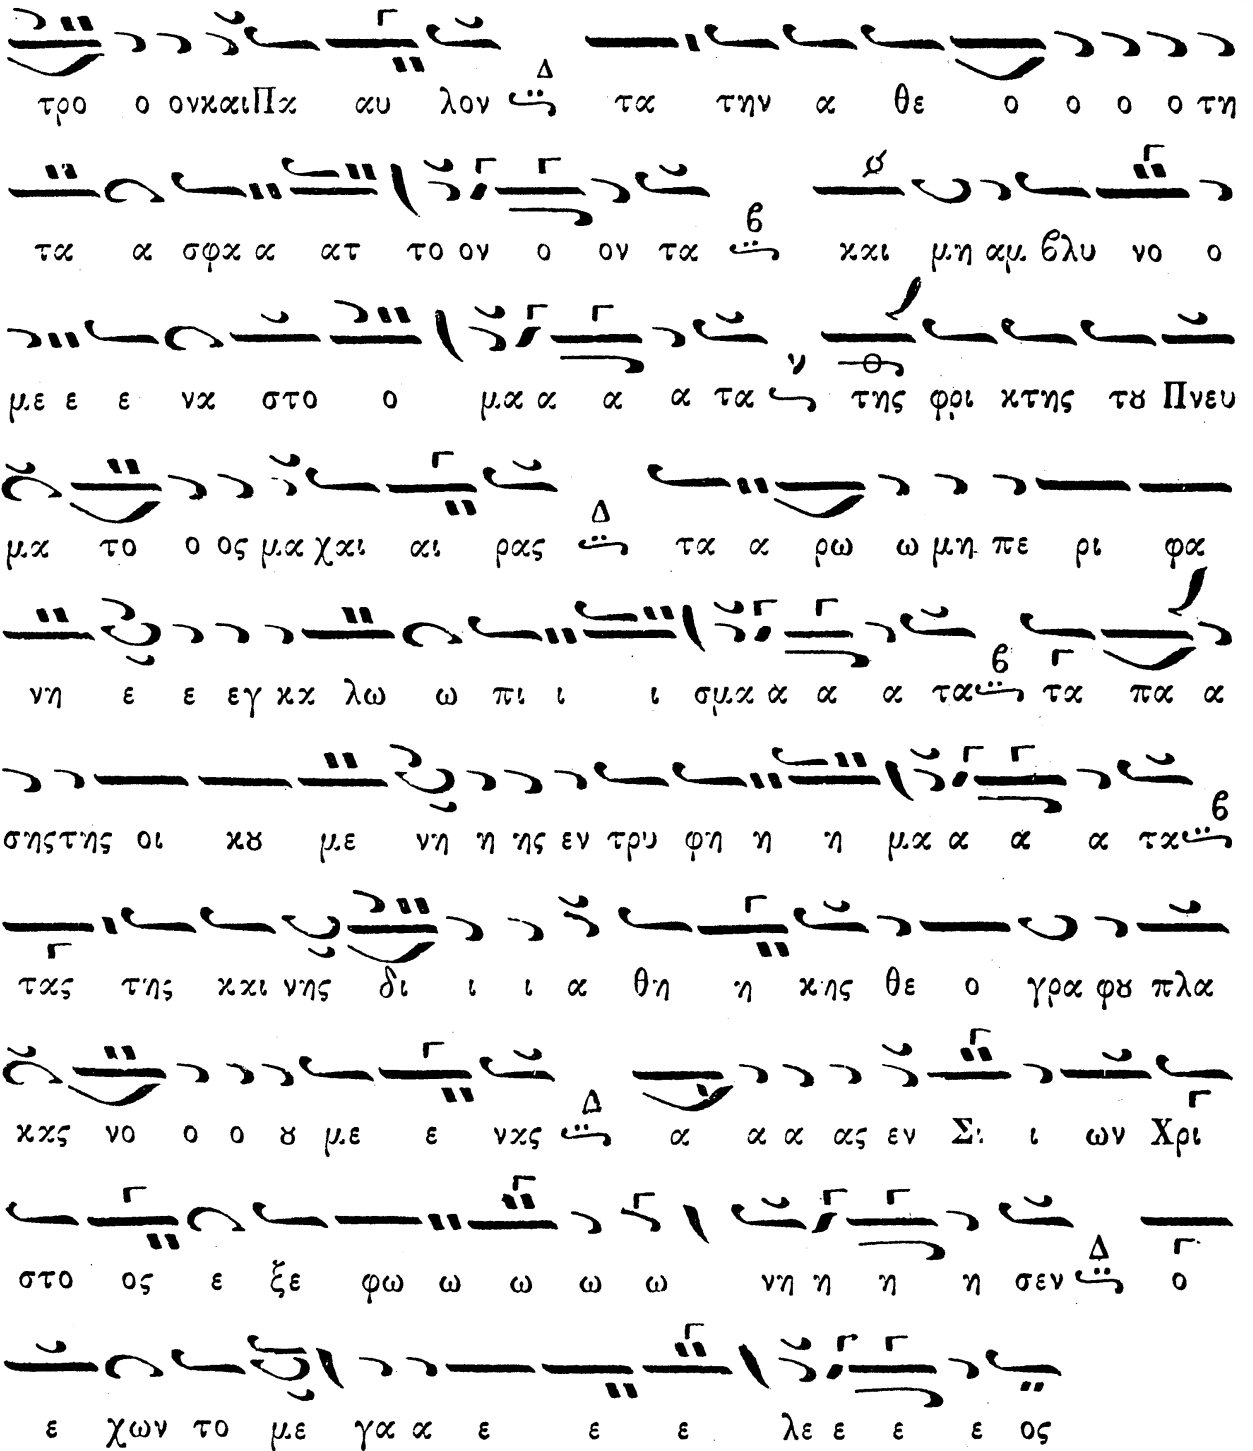 τρο ο ονκαιΠα αυ λον Δ τα την α θε ο ο ο ο τη
τα α σφα α ατ το ον ο ον τα ϐ και μη αμ ϐλυ νο ο
με ε ε να στο ο μα α α α τα ν της φρι κτης τȣ Πνευ
μα το ο ος μα χαι αι ρας Δ τα α ρω ω μη πε ρι φα
νη ε ε εγ κα λω ω πι ι ι σμα α α α τα ϐ τα πα α
σηςτης οι κȣ με νη η ης εν τρυ φη η η μα α α α τα ϐ
τας της και νης δι ι ι α θη η κης θε ο γρα φȣ πλα
κας νο ο ο ȣ με ε νας Δ α α α ας εν Σι ι ων Χρι
στο ος ε ξε φω ω ω ω ω νη η η η σεν Δ ο
ε χων το με γα α ε ε ε λε ε ε ε ος